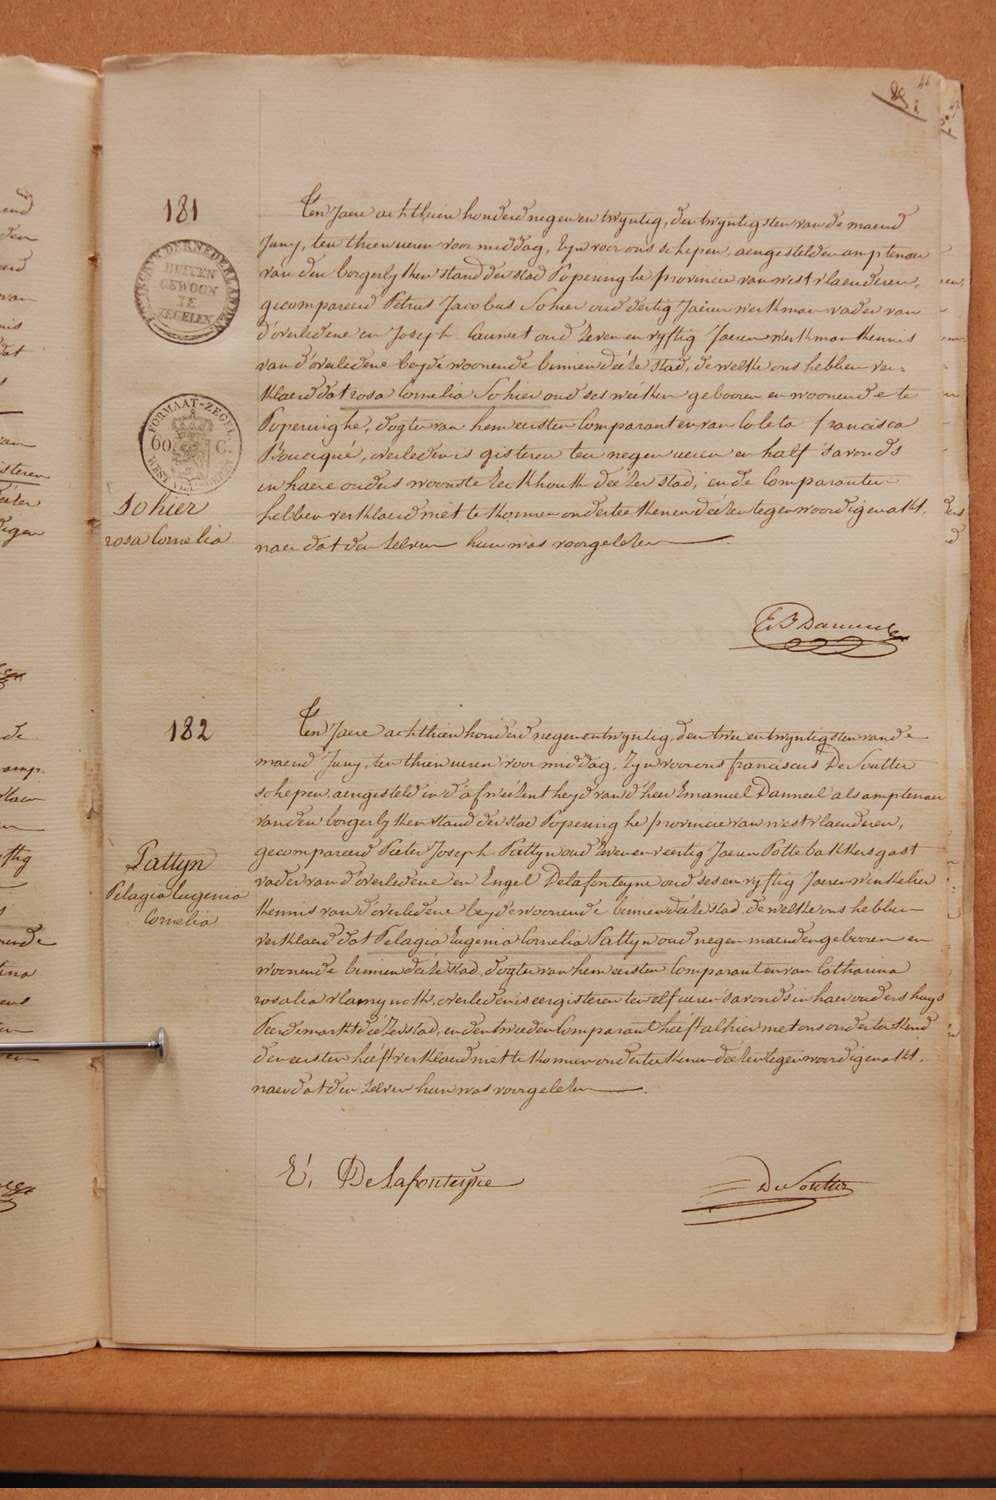 181
Ten Jaere achthien honderd negen en twyntig, den twyntigsten van de maend
Juny, ten thien ueren voor middag, Zyn voor ons schepen, aengestelden amptenaer
van den borgerlyken stand der stad Poperinghe provincie van westvlaenderen,
gecompareerd Petrus Jacobus Sohier oud dertig Jaeren werkman vader van
d'overledene en Joseph Cauwet oud Zeven en vyftig Jaeren werkman kennis
van d'overledene beyde woonende binnen deéze stad, de welke ons hebben ver-
klaerd dat rosa Cornelia Sohier oud ses wéeken gebooren en woonende te
Poperinghe, dogter van hem eersten Comparant en van Coleta francisca
Bouciqué, overleden is gisteren ten negen ueren en half s'avonds
in haere ouders woonste Eeckhoutk deéZer stad, en de Comparanten
hebben verklaerd niet te konnen onderteekenen déeZen tegenwoordigen akt,
naer dat den Zelven hun was voorgeleZen
KONINGRYK DER NEDERLANDEN
BUITEN
GEWOON
TE
ZEGELEN
FORMAAT-ZEGEL
60 C.
WEST VLAENDEREN
Sohier
rosa Cornelia
182
Ten Jaere achthien honderd negen en twyntig, den twee en twyntigsten van de
maend Juny, ten thien ueren voor middag, Zyn voor ons franciscus De Soutter
schepen, aengesteld in d'afwéeZentheyd van d'heer Emanuel Danneel als amptenaer
van den borgerlyken stand der stad Poperinghe provincie van westvlaenderen,
gecompareerd Pieter Joseph Pattyn oud Zeven en veertig Jaeren Pottebakkersgast
vader van d'overledene en Engel Delafonteyne oud ses en vyftig Jaeren winkelier
kennis van d'overledene beyde woonende binnen deéZe stad de welke ons hebben
verklaerd dat Pelagia Eugenia Cornelia Pattyn oud negen maenden gebooren en
woonende binnen deéZe stad, dogter van hem eersten Comparant en van Catharina
rosalia vlamynck, overleden is eergisteren ten elf ueren s'avonds in haer ouders huys
Peerdemarkt déeZer stad, en den tweeden Comparant heéft alhier met ons onderteekend
den eersten heéft verklaerd niet te konnen onderteekenen déeZen tegenwoordigen akt,
naer dat den Zelven hun was voorgeleZen
Pattyn
Pelagia Eugenia
Cornelia
E. DeLafonteyne
De Soutter